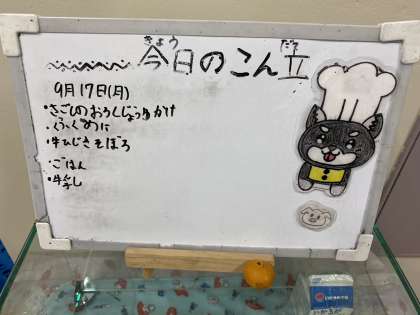 きょう だて
今日のこん立
9月17日(月)
・さごしのおろしじょうゆかけ
・ふくめに
・牛ひじきそぼろ
・ごはん
・牛乳